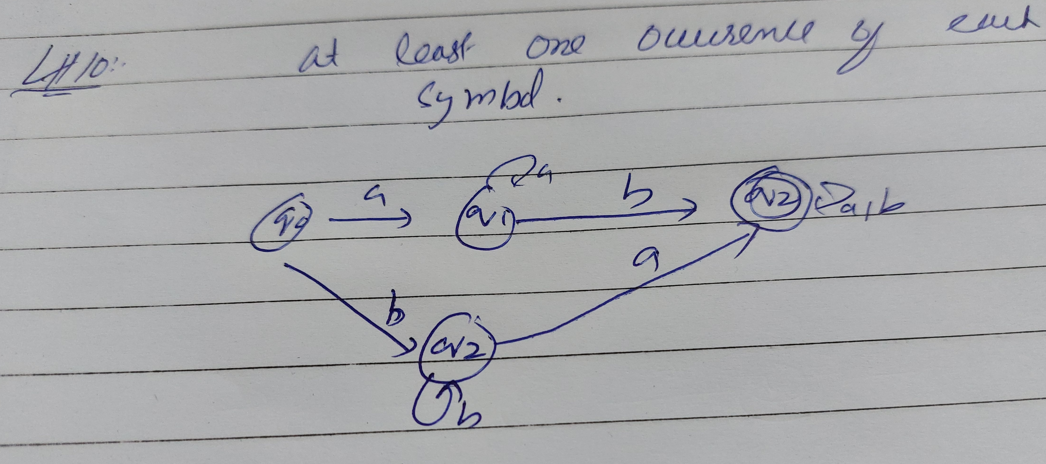 LH10:-
at least one occurence of each
symbol.
a
a
b
q0
q1
q2
a,b
a
b
q2
b